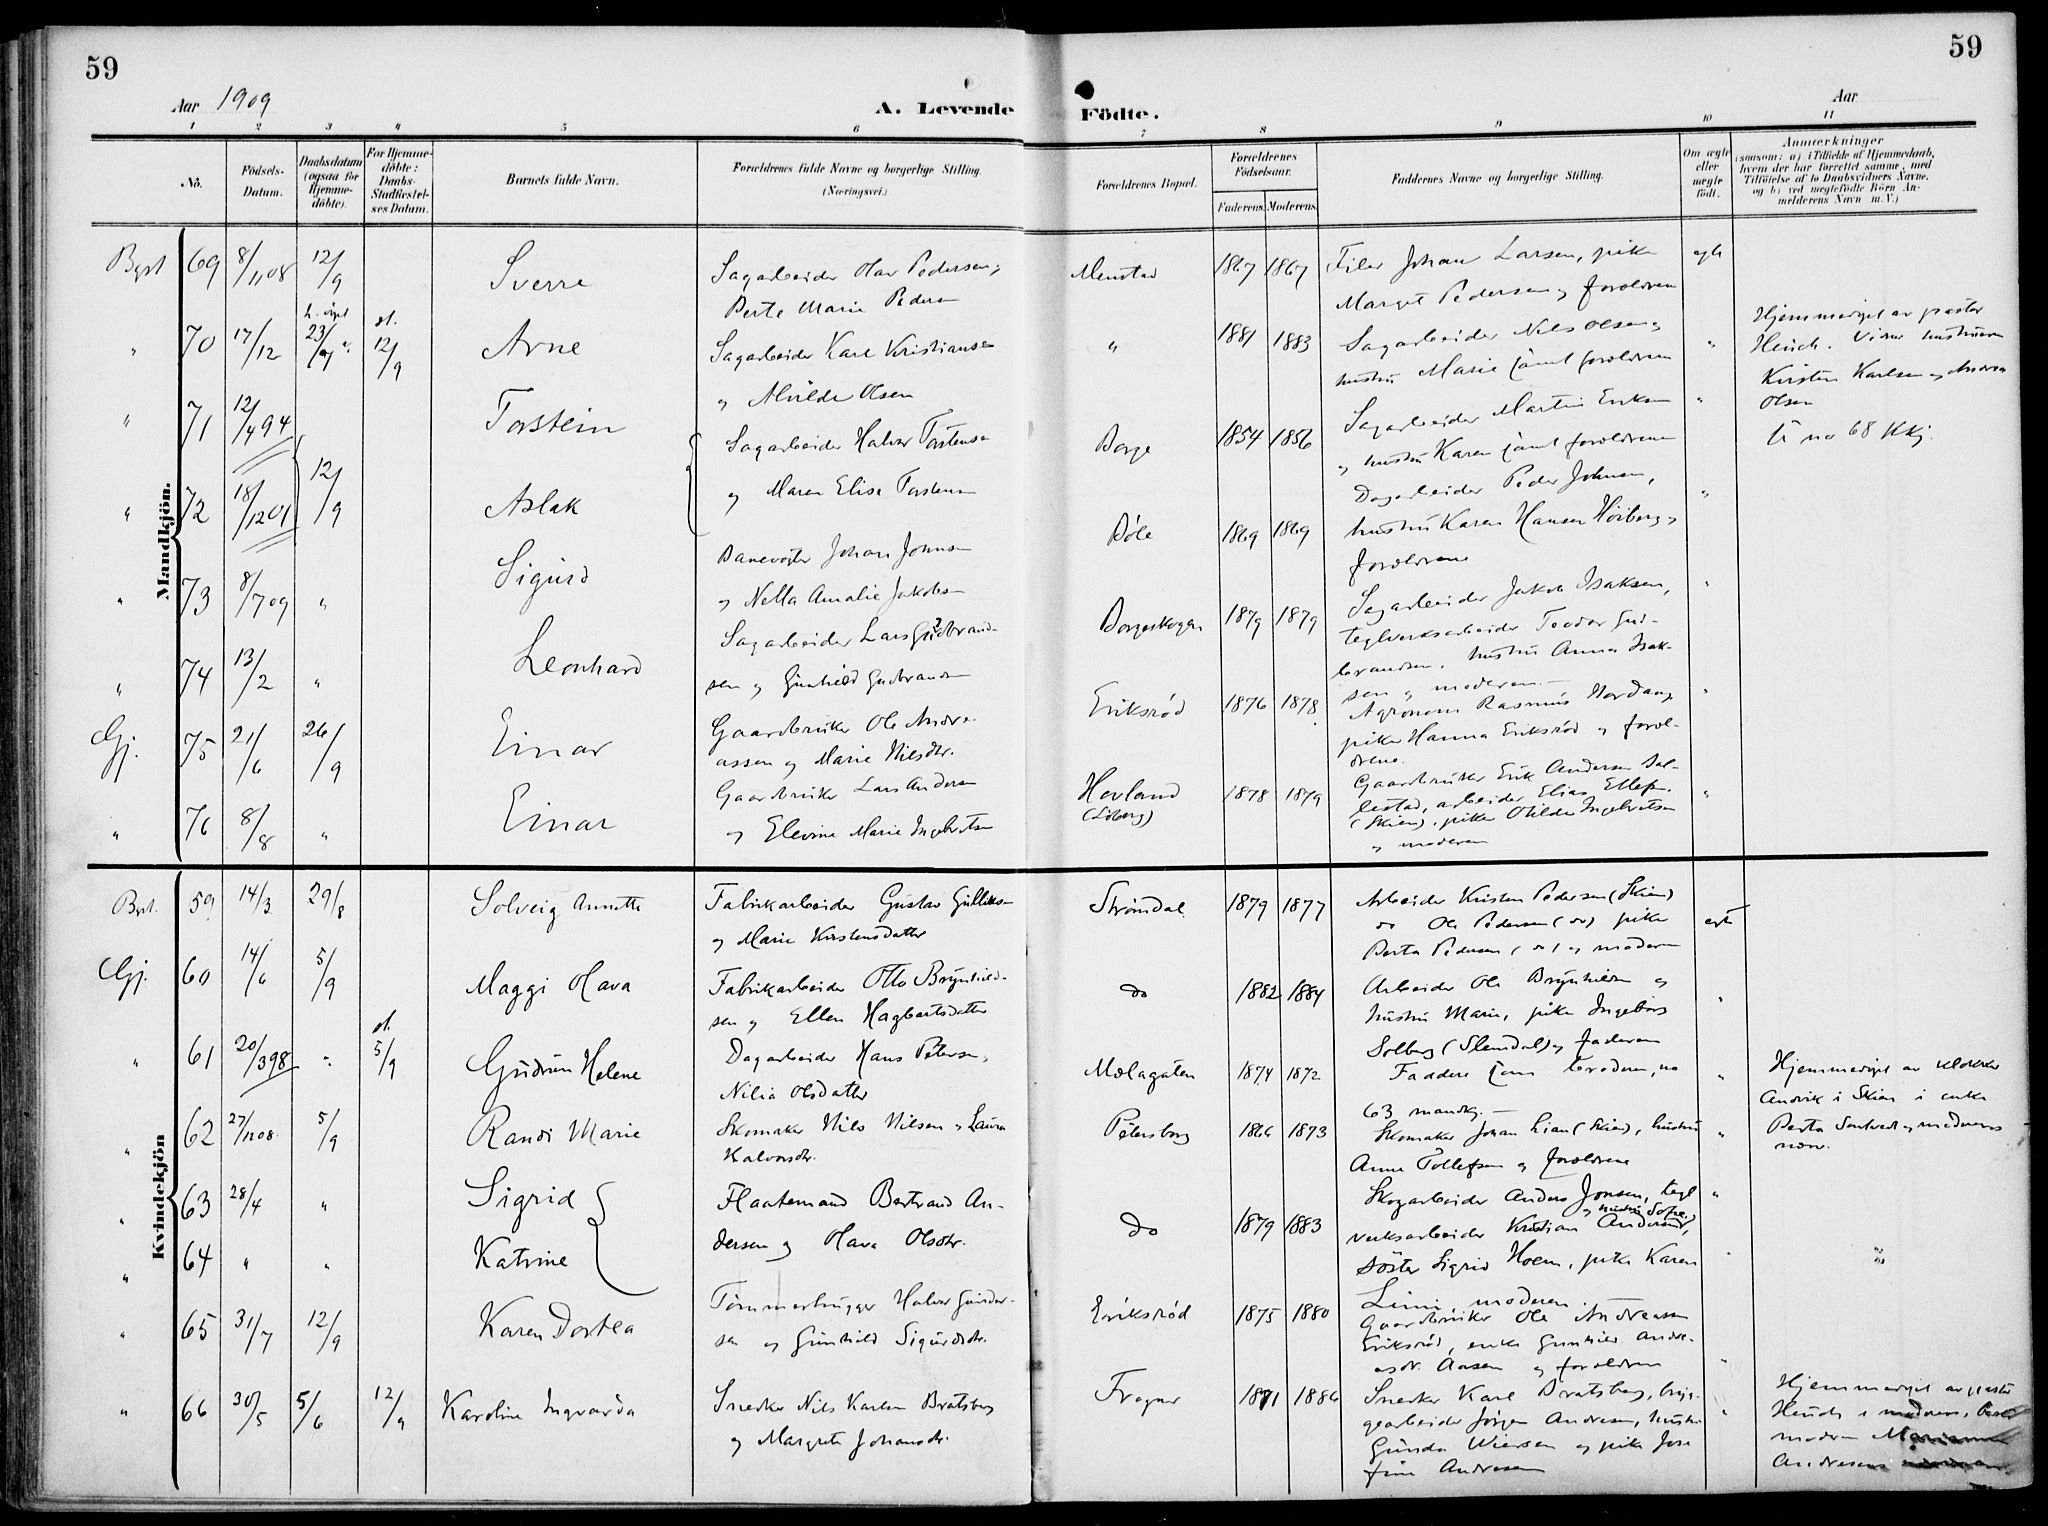 59
59
Aar 1909
A. Levende
Födte.
Aar
1 2 3 4 5 6 7 8 9 10 11
No.
Födsels-Datum.
Daabsdatum (ogsaa for Hjemme-döbte).
For Hjemme-döbte: Daabs-Stadfæstel-ses Datum.
Barnets fulde Navn.
Forældrenes fulde Navne og borgerlige Stilling. (Næringsvei.)
Forældrenes Bopæl.
Forældrenes Födselsaar.
Faderens. Moderens.
Faddernes Navne og borgerlige Stilling.
Om ægte eller uægte födt.
Anmærkninger
(saasom: a) i Tilfælde af Hjemmedaab, hvem der har forrettet samme, med Tilföielse af to Daabsvidners Navne, og b) ved uægtefödte Börn An-melderens Navn m. V.)
Mandkjön.
69 8/11 08 12/9 Sverre
Sagarbeider Olav Pedersen og
Berte Marie Peders
Menstad 1867 1867
Filer Johan Larsen, pike
Margit Pedersen og forældrene
egte
" 70 17/12 23/9 12/9 Arne
Sagarbeider Karl Kristiansen
og Alvilde Olsen
" 1881 1883
Sagarbeider Nils Olsen og
hustru Marie samt forældrene
"
Hjemmedøpt av pastor
Heuch. Vidner hustruerne
Kirsten Karlsen og Andrea
Olsen
" 71 12/4 94 Torstein
Sagarbeider Halvor Torstensen
og Maren Elise Torstensen
Borge 1854 1856
Sagarbeider Martin Eriksen
og hustru Karen samt forældrene
"
no 68 Kkj.
" 72 18/12 01 12/9 Aslak
Dagarbeider Peder Johnsen,
hustru Karen Hansen Höiberg og
forældrene
"
" 73 8/7 09 " Sigurd
Banevogter Johan Johnsen
og Nella Amalie Jakobsen
Bøle 1869 1869
" 74 13/2 " Leonhard
Sagarbeider Lars Gudbrand-
sen og Gunhild Gudbrandsen
Borgeskogen 1879 1879
Sagarbeider Jakob Isaksen,
teglverksarbeider Teodor Gud-
brandsen, hustru Anna Isak-
sen og moderen.
"
Gj. 75 21/6 26/9 Einar
Gaardbruker Ole Andre-
assen og Marie Nilsdtr.
Eriksrød 1876 1878
Agronom Rasmus Nordang
pike Hanna Eriksrød og foræl-
drene.
"
" 76 8/8 " Einar
Gaardbruker Lars Andersen
og Elevine Marie Ingebretsen
Hovland 1878 1879
Gaardbruker Erik Andersen
arbeider Elias Ellefsen
(Skien), pike Otilde Ingebretsen
og moderen
"
Kvindekjön
59 14/3 29/8 Solveig Annette
Fabrikarbeider Gustav Gulliksen
og Marie Kirstensdatter
Strömdal 1879 1877
Arbeider Kristen Pedersen (Skien)
do Ole Pedersen (do) pike
Berta Pedersen (do) og moderen
egte
Gj. 60 14/6 5/9 Maggi Olava
Fabrikarbeider Otto Brynhild-
sen og Ellen Hagbartsdatter
do 1882 1884
Arbeider Ole Brynhildsen og
hustru Marie, pike Ingeborg
Solberg (Slemdal) og faderen
"
" 61 20/3 98 5/9 Gudrun Helene
Dagarbeider Hans Petersen,
Nilia Olsdatter
Mælagaten 1874 1872
Faddere som broderen, no
63 mandkj.
"
Hjemmedøpt av klokker
Andvik i Skien i enke
Berta og moderens
nærv.
" 62 27/11 08 5/9 Randi Marie
Skomaker Nils Nilsen og Laura
Halvorsdtr.
Petersborg 1866 1873
Skomaker Johan Lian (Skien), hustru
Anne Tollefsen og forældrene
"
" 63 28/4 " Sigrid
" 64 " " Katrine
Flaatemand Bertrand An-
dersen og Olava Olsdtr.
do 1879 1883
Skogarbeider Anders Jonsen, tegl
og hustru Sofie,
verksarbeider Kristian Andersen,
søster Sigrid Hoem, pike Karen
Lunn moderen.
"
" 65 31/7 12/9 Karen Dortea
Tømmerhugger Halvor Gunder-
sen og Gunhild Sigurdsdtr.
Eriksrød 1875 1880
Gaardbruker Ole Andreassen
Eriksrød, enke Gunhild Andre-
asdtr. Aasen og forældrene
"
" 66 30/5 5/6 12/9 Karoline Ingvarda
Snedker Nils Karlsen Bratsberg
og Margrete Johansdtr.
Frogner 1871 1886
Snedker Karl Bratsberg, bryg-
gearbeider Jørgen Andresen, hustru
Gunda Wiersen og pike Jose
fine Andresen
"
Hjemmedøpt av pastor
Heuch i moderens,
moderen Marianne
Andresens